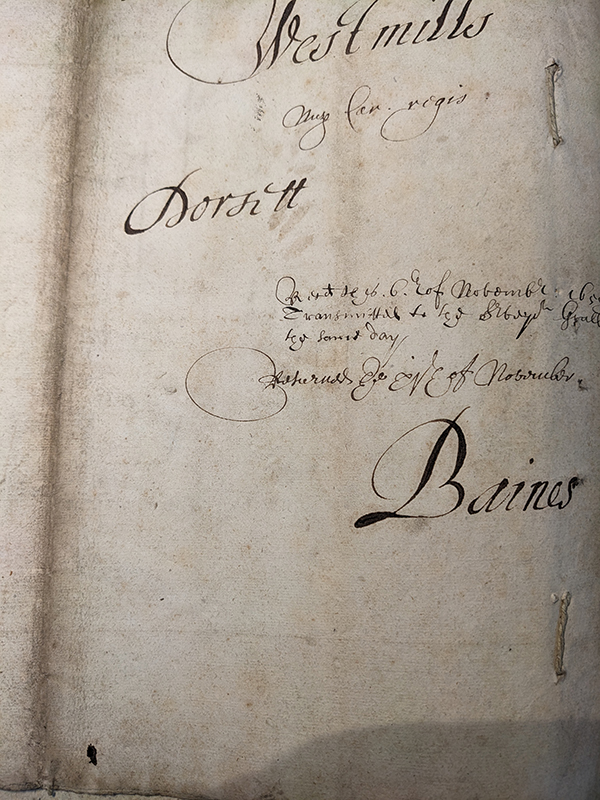 Westmills
Nup Car. regis
Dorsett
Recd the 6.th of Novembr. 165
Transmitted to the Survey.r Gnall
the same day
Returned the of November.
Baines